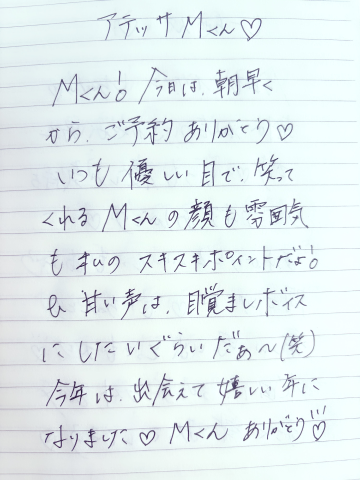 アテッサMくん♡
Mくん!今日は、朝早く
から、ご予約ありがとう♡
いつも優しい目で、笑って
くれるMくんの顔も雰囲気
も私のスキスキポイントだよ!
& 甘い声は、目覚ましボイス
にしたいぐらいだぁ〜(笑)
今年は、出会えて嬉しい年に
なりました♡Mくんありがとう♡